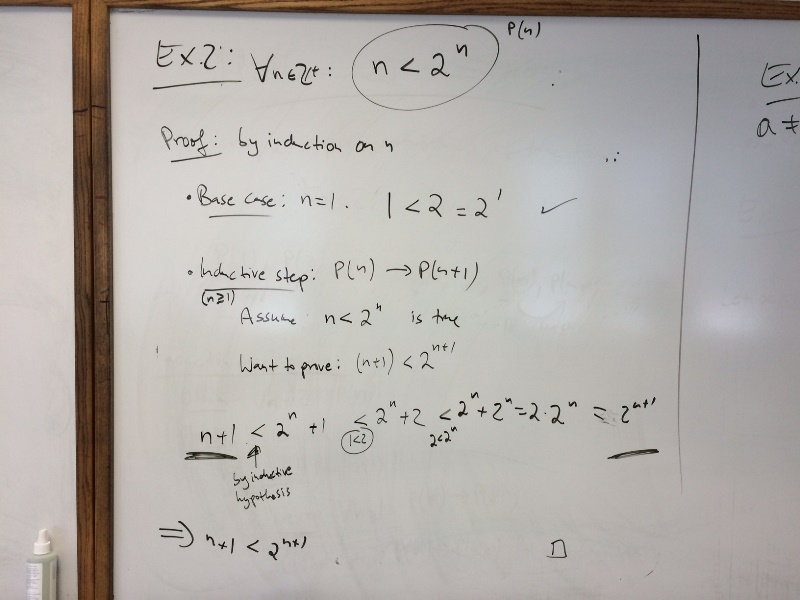 Ex2: ∀n∈ℤ⁺: n < 2ⁿ P(n)
Proof: by induction on n
• Base case: n=1. 1 < 2 = 2¹ ✓
• Inductive step: P(n) → P(n+1)
(n≥1)
Assume n < 2ⁿ is true
Want to prove: (n+1) < 2ⁿ⁺¹
n+1 < 2ⁿ +1 < 2ⁿ+2 < 2ⁿ+2ⁿ = 2·2ⁿ = 2ⁿ⁺¹
1<2 2<2ⁿ
by inductive
hypothesis
⇒ n+1 < 2ⁿ⁺¹ □
Ex.
a ≠